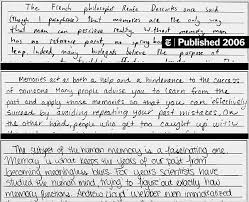 The French philosopher René Descartes once said
(though I paraphrase) that memories are the only way
that man can perceive reality. Without memory, man
has no reference point, no
leap. Indeed, many
E Published 2006
Memories act as both a help and a hinderence to the success
of someone. Many people advise you to learn from the
past and apply those memories so that you can effectively
succeed by avoiding repeating your past mistakes. On
the other hand, people who get too caught up with
The subject of the human memory is a fascinating one.
Memory is what keeps the years of our past from
becoming meaningless blurs. For years scientists have
studied the human mind, trying to figure out exactly how
memory functions. Andrew Lloyd Webber even immortalized